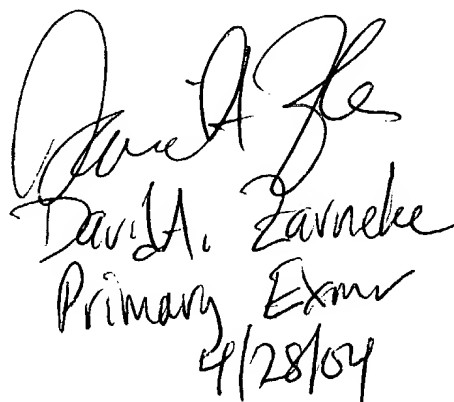 David A. Zarneke
Primary Exmr
4/28/04